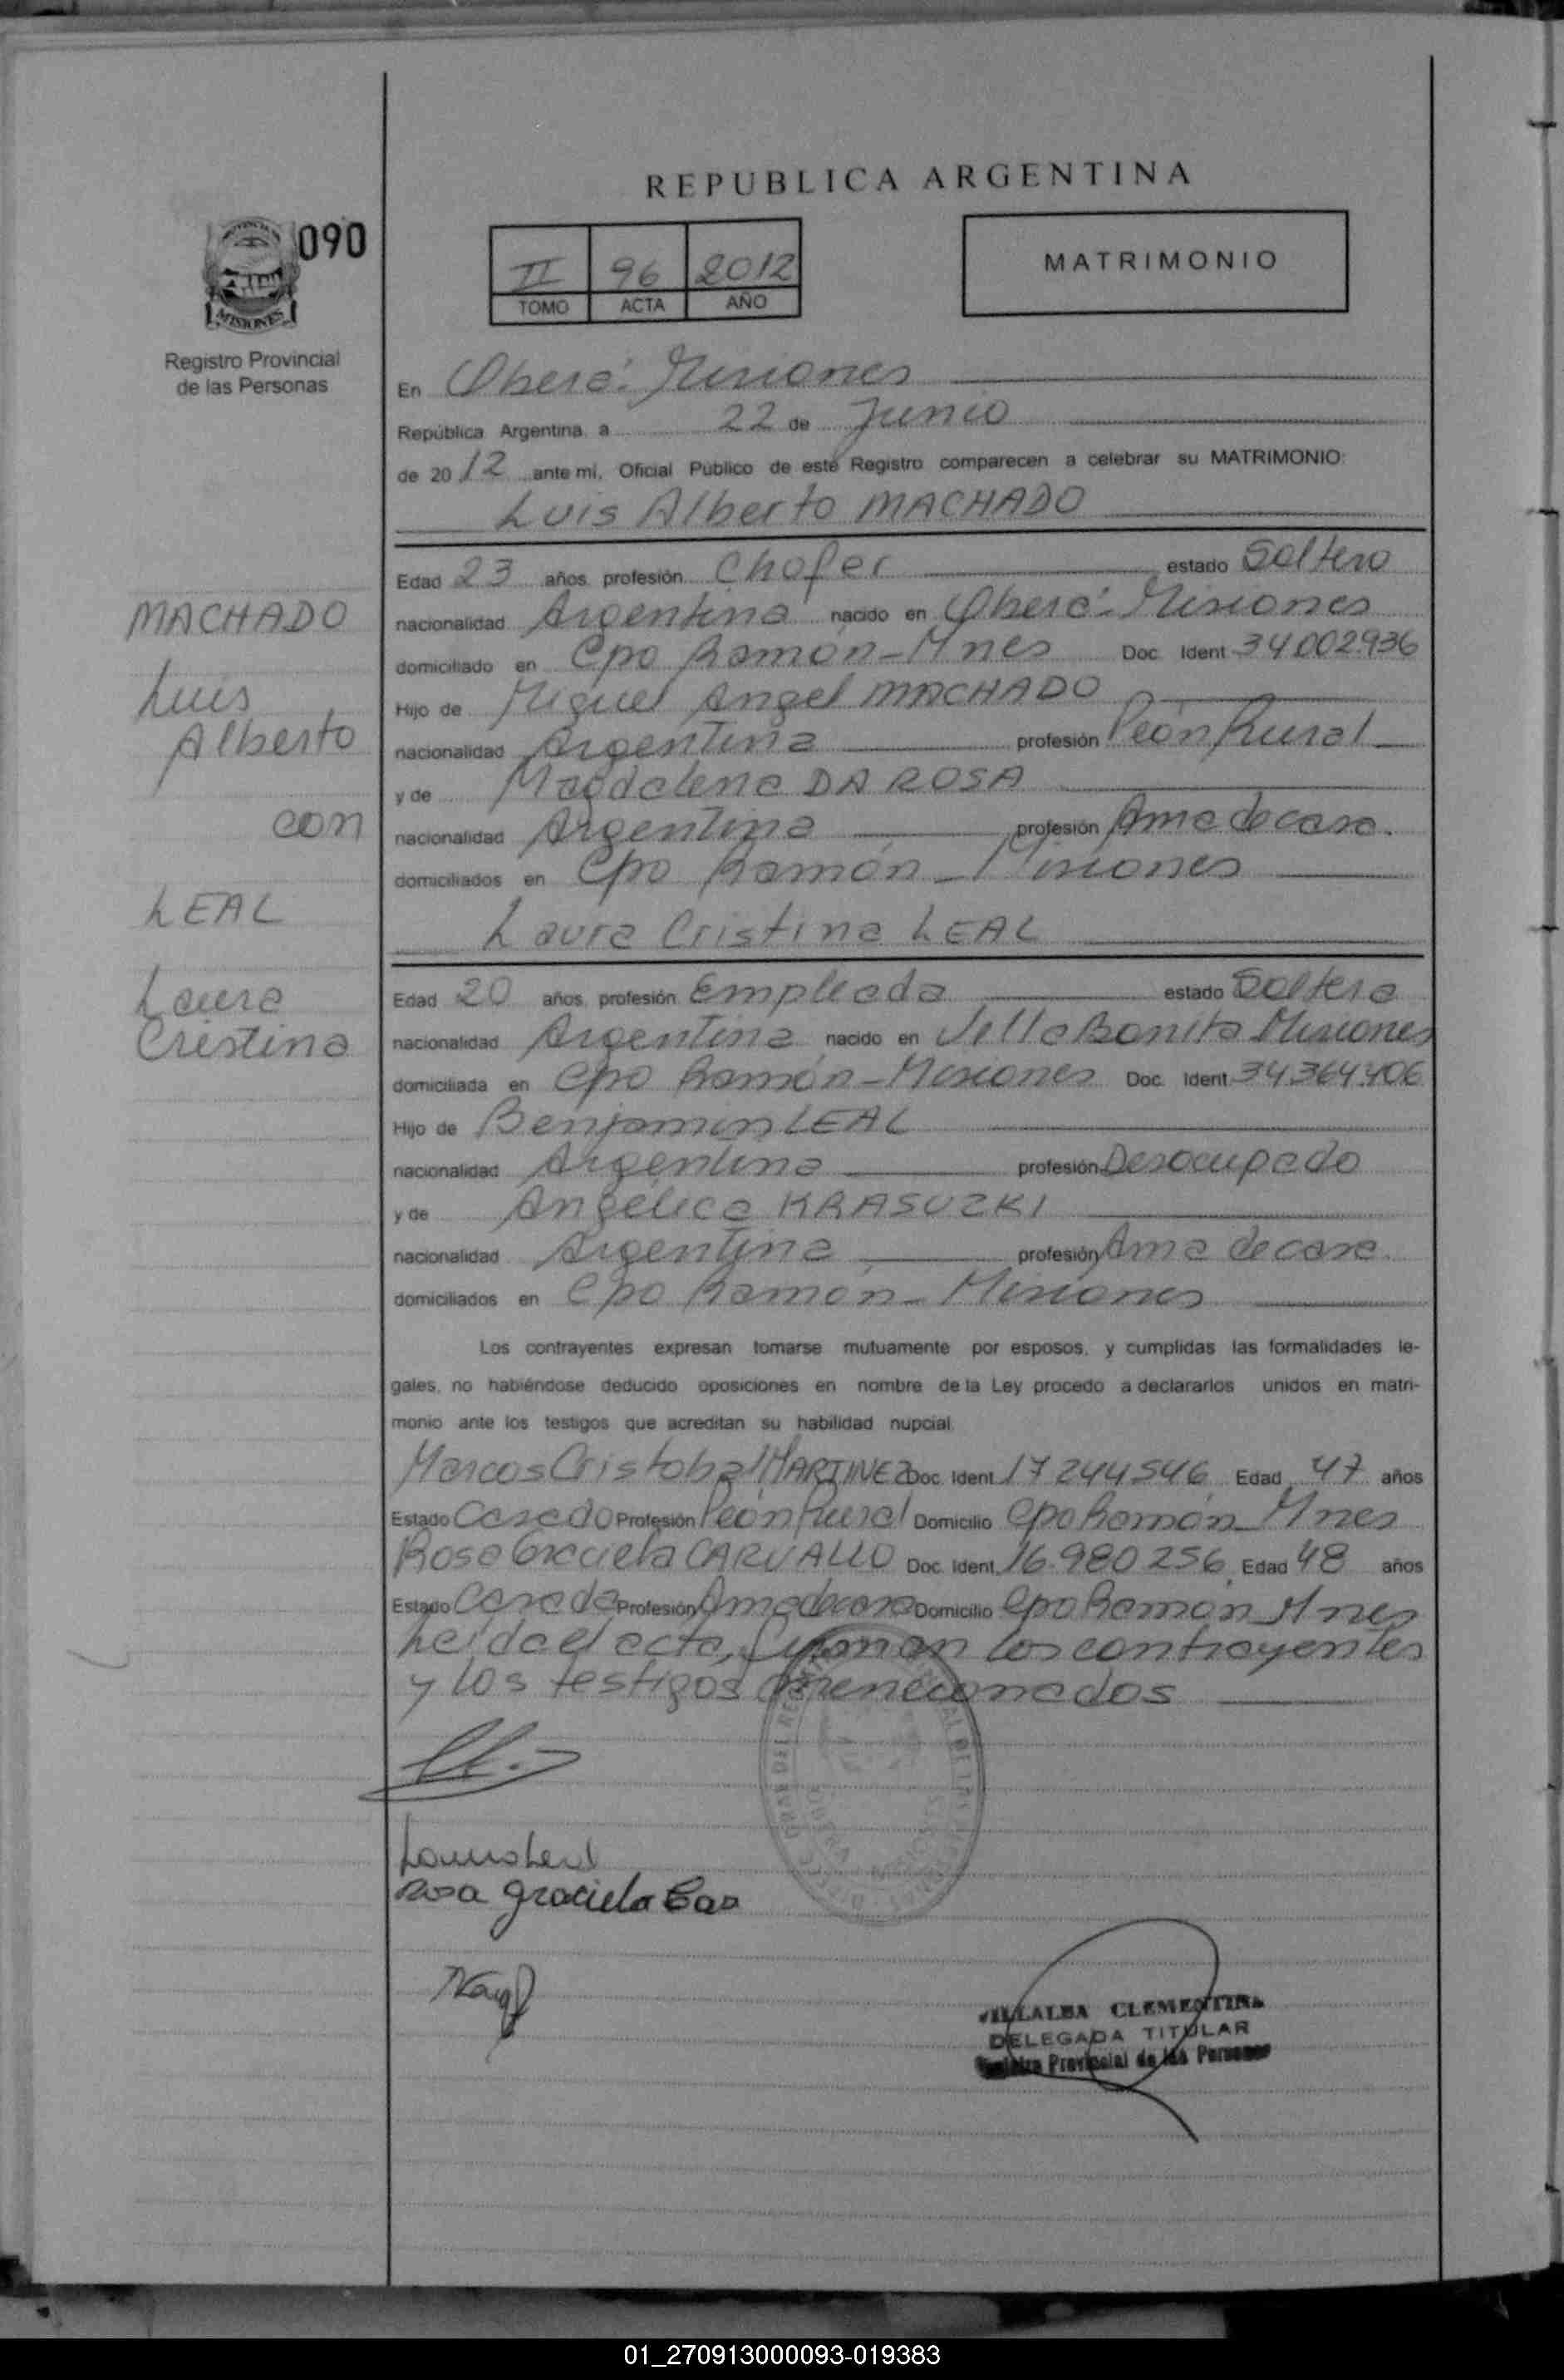 REPUBLICA ARGENTINA
090
MISIONES
Registro Provincial
de las Personas
II 96 2012
TOMO ACTA AÑO
MATRIMONIO
En Oberá: Misiones
República Argentina a 22 de Junio
de 2012 ante mi, Oficial Público de este Registro comparecen a celebrar su MATRIMONIO:
Luis Alberto MACHADO
Edad 23 años profesión Chofer estado Soltero
nacionalidad Argentina nacido en Oberá: Misiones
domiciliado en Cpo Ramón-Mnes Doc. Ident. 34.002.936
Hijo de Miguel Angel MACHADO
nacionalidad Argentina profesión Peón Rural
y de Magdalena DA ROSA
nacionalidad Argentina profesión Ama de casa.
domiciliados en Cpo Ramón - Misiones
Laura Cristina LEAL
MACHADO
Luis
Alberto
con
LEAL
Laura
Cristina
Edad 20 años profesión Empleada estado Soltera
nacionalidad Argentina nacido en Villa Bonita Misiones
domiciliada en Cpo Ramón-Misiones Doc. Ident. 34.364.406
Hijo de Benjamin LEAL
nacionalidad Argentina profesión Desocupado
y de Angélica KRASUZKI
nacionalidad Argentina profesión Ama de casa.
domiciliados en Cpo Ramón - Misiones
Los contrayentes expresan tomarse mutuamente por esposos, y cumplidas las formalidades le-
gales, no habiéndose deducido oposiciones en nombre de la Ley procedo a declararlos unidos en matri-
monio ante los testigos que acreditan su habilidad nupcial.
Marcos Cristobal MARTINEZ Doc. Ident. 17.244.546 Edad 47 años
Estado Casado Profesión Peón Rural Domicilio Cpo Ramón Mnes
Rosa Graciela CARVALLO Doc. Ident. 16.980.256 Edad 48 años
Estado Casada Profesión Ama de casa Domicilio Cpo Ramón Mnes
Leída el acta, firman los contrayentes
y los testigos mencionados
Laura Leal
Rosa Graciela Car
VILLALBA CLEMENTINA
DELEGADA TITULAR
Registro Provincial de las Personas
01_270913000093-019383